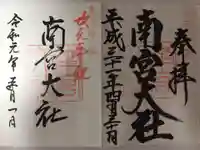 奉拝
南宮大社
平成三十一年四月三十日
南宮大社
令和元年五月一日